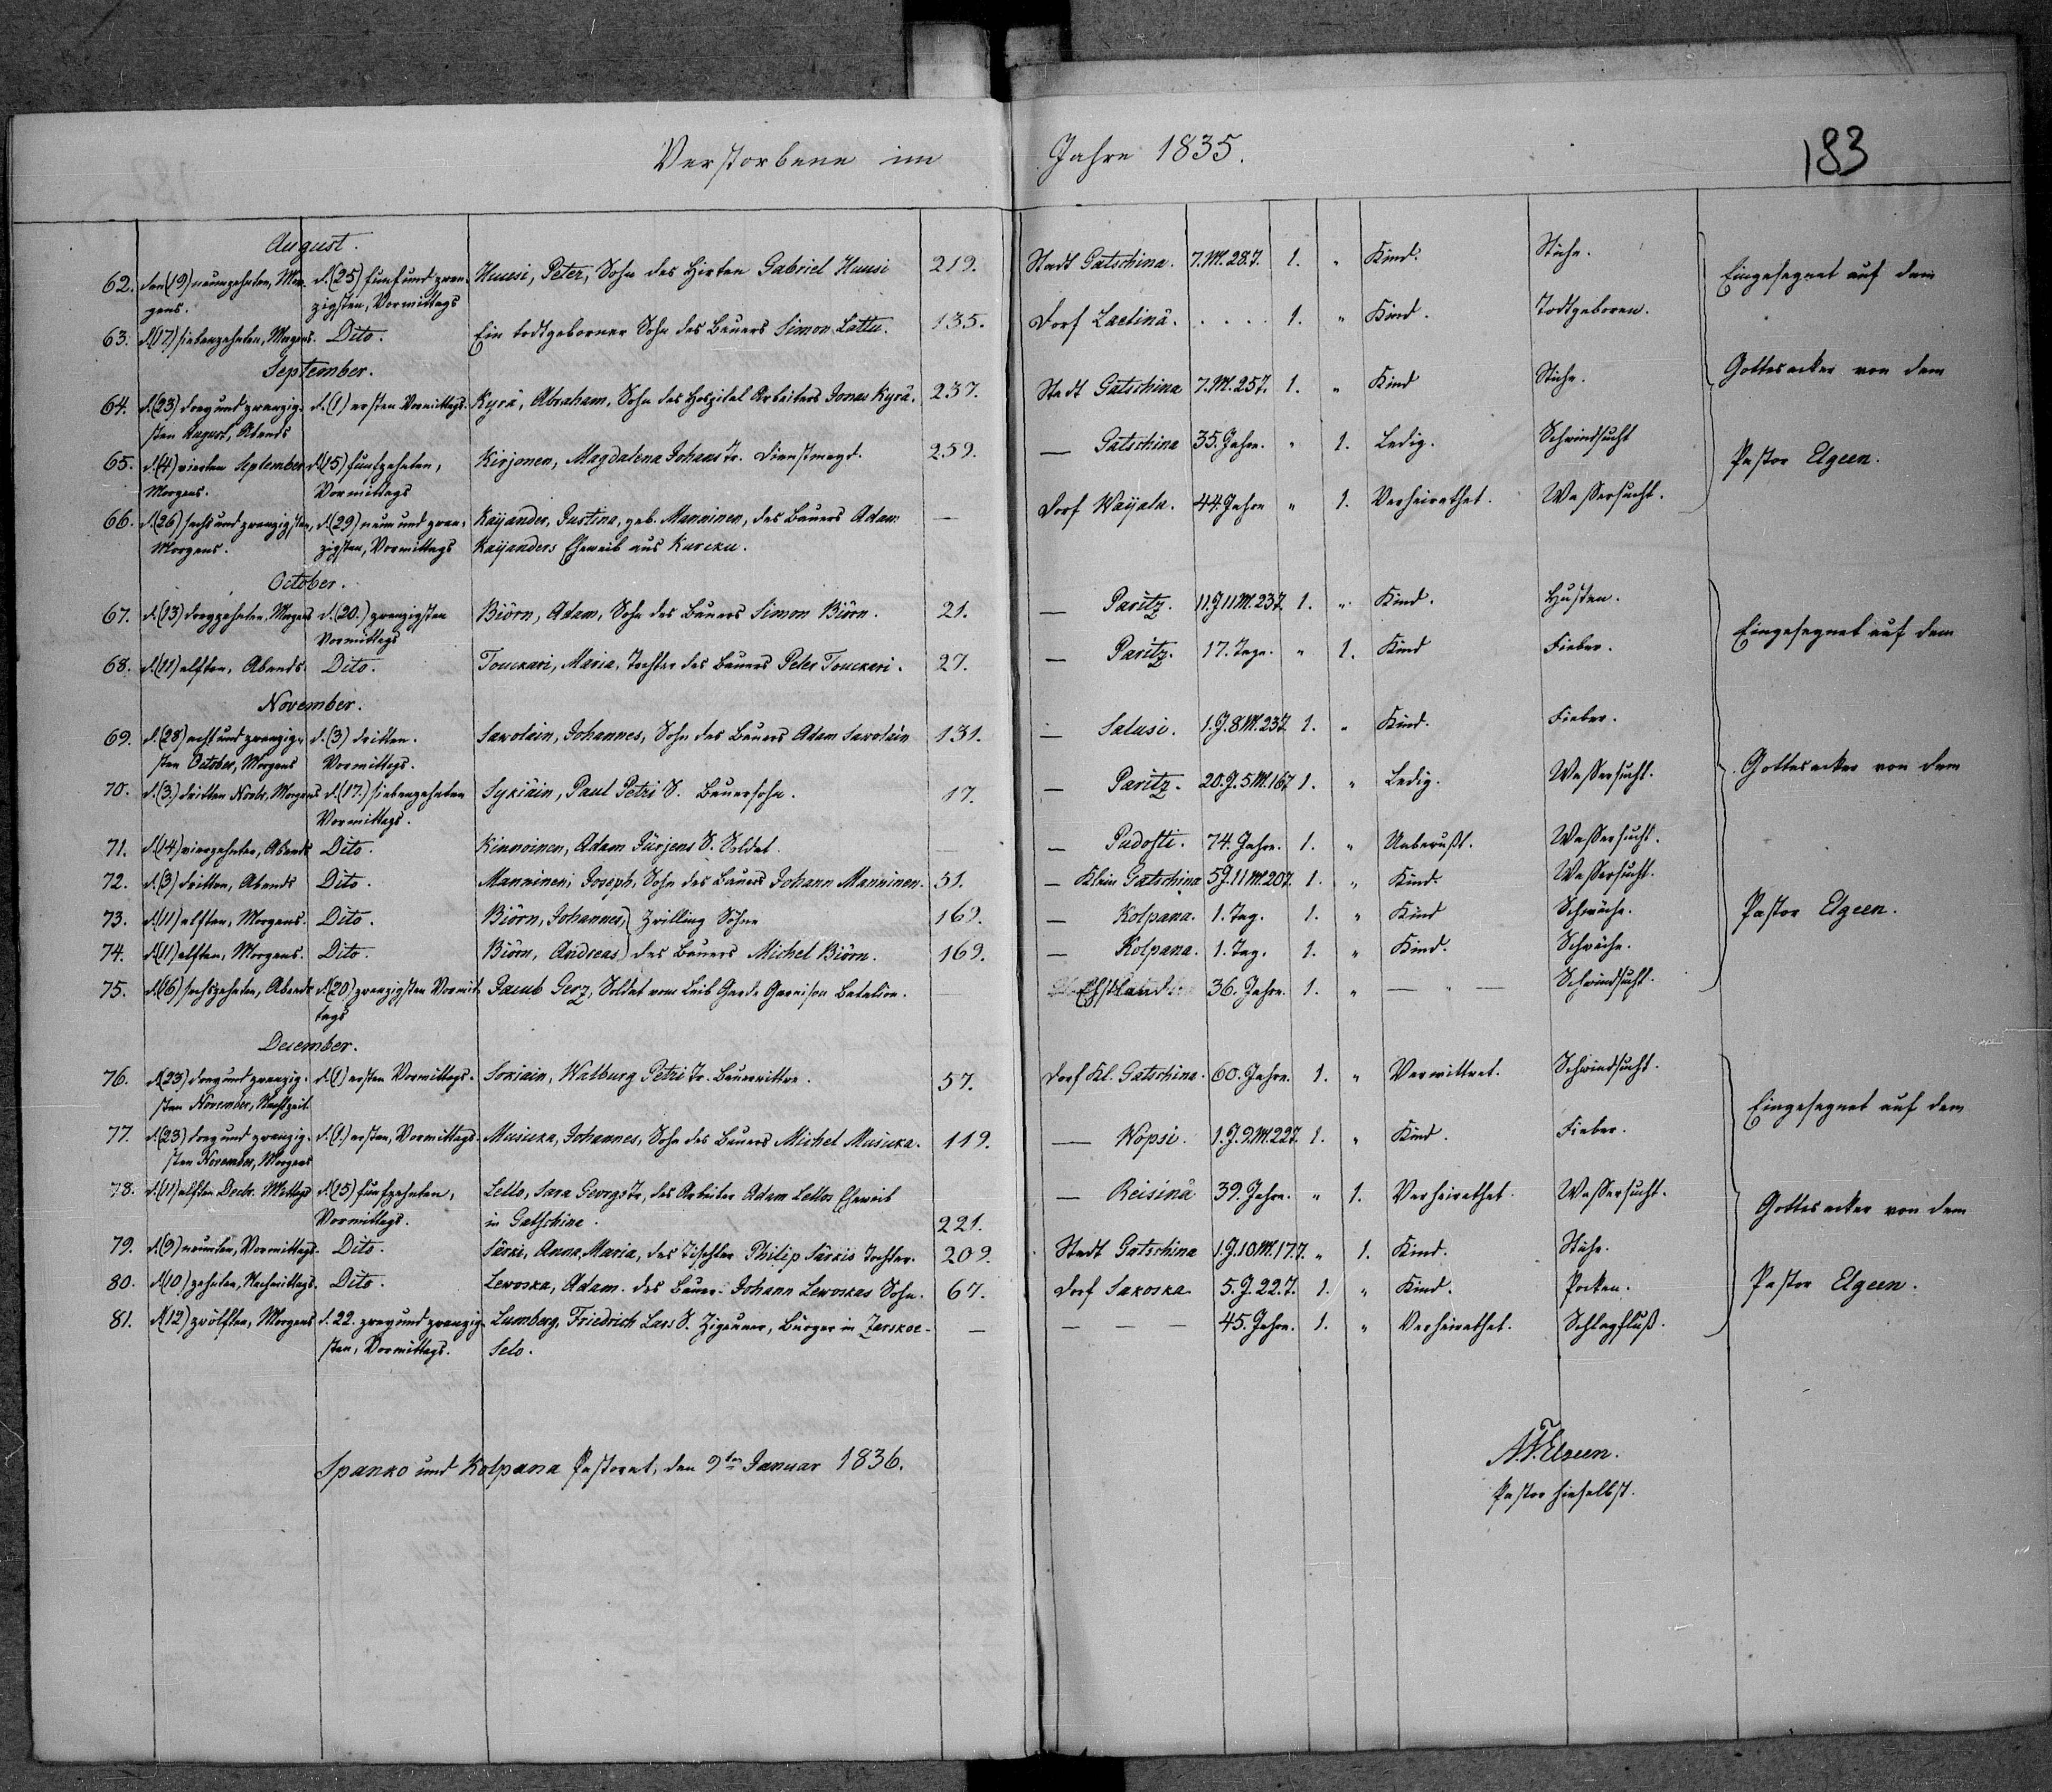 Verstorbene im Jahre 1835.
183
August.
62. den (19) neunzehnten, Mor- d. (25) fünf und zwan- Huusi, Peter, Sohn des Hirten Gabriel Huusi 219. Stadt Gatschina. 7.M.28.T. 1. " Kind. Stiche. Eingesegnet auf dem
gens. zigsten, Vormittags
63. d. (17) siebenzehnten, Morgens. Dito. Ein todtgeborner Sohn des Bauers Simon Lattu. 135. Dorf Laetinä. . . . . 1. " Kind. Todtgeboren.
September.
64. d. (23) drey und zwanzig- d. (1) ersten Vormittags. Kyrä, Abraham, Sohn des Hospital Arbeiters Jonas Kyrä. 237. Stadt Gatschina 7.M.25T. 1. " Kind Stiche. Gottesacker von dem
sten August, Abends
65. d. (4) vierten September d. (15) fünfzehnten, Kirjonen, Magdalena Johans Tr. Dienstmagd. 259. — Gatschina 35. Jahre. " 1. Ledig. Schwindsucht Pastor Elgeen.
Morgens. Vormittags
66. d. (26) sechs und zwanzigsten, d. (29) neun und zwan- Kaÿander, Justina, geb. Manninen, des Bauers Adam — Dorf Waÿala. 44. Jahre " 1. Verheirathet. Wassersucht.
Morgens. zigsten, Vormittags Kaÿanders Eheweib aus Kurcku.
October.
67. d. (13) dreyzehnten, Morgens d. (20.) zwanzigsten Biörn, Adam, Sohn des Bauers Simon Biörn. 21. — Paritz. 11.J 11M. 23T. 1. " Kind. Husten. Eingesegnet auf dem
Vormittags
68. d. (11) elften, Abends. Dito. Touckari, Maria, Tochter des Bauers Peter Touckari. 27. — Paritz. 17. Tage. " 1. Kind Fieber.
November.
69. d. (28) acht und zwanzig- d. (3) dritten. Sawolain, Johannes, Sohn des Bauers Adam Sawolain 131. — Salusi. 1.J.8M.23T. 1. " Kind. Fieber.
sten October, Morgens Vormittags.
70. d. (3.) dritten Novbr, Morgens d. (17.) siebenzehnten Sykiäin, Paul Petri S. Bauersohn. 17. — Paritz. 20.J.5M.16T. 1. " Ledig. Wassersucht. Gottesacker von dem
Vormittags.
71. d. (14) vierzehnten, Abends Dito. Kinnoinen, Adam Jürjens S. Soldat. — — Pudosti. 74. Jahre. 1. " Unbewußt. Wassersucht.
72. d. (3) dritten, Abends Dito. Manninen, Joseph, Sohn des Bauers Johann Manninen. 51. — Klein Gatschina 5J.11M.20T. 1. " Kind. Wassersucht.
73. d. (11) elften, Morgens. Dito. Biörn, Johannes, Zwilling Söhne 169. — Kolpana. 1. Tag. 1. " Kind Schwäche. Pastor Elgeen.
74. d. (11) elften, Morgens. Dito. Biörn, Andreas des Bauers Michel Biörn. 169. — Kolpana. 1. Tag. 1. " Kind. Schwäche.
75. d. (16) sechszehnten, Abends d. (20) zwanzigsten Vormit- Jacub Gerz, Soldat vom Leib Garde Garnison Batalion. — Ehstland. 36. Jahre. 1. " — " — Schwindsucht.
tags
December.
76. d. (23) drey und zwanzig- d. (1) ersten Vormittags. Sokiain, Walburg Petri Tr. Bauerwittwe. 57. Dorf Kl. Gatschina. 60. Jahre. 1. " Verwittwet. Schwindsucht. Eingesegnet auf dem
sten November, Nachtzeit.
77. d. (23) drey und zwanzig- d. (1.) ersten, Vormittags. Musicka, Johannes, Sohn des Bauers Michel Musicka. 119. — Wopsi. 1.J.9.M.22T. 1. " Kind. Fieber.
sten November, Morgens
78. d. (11) elften Decbr. Mittags d. (15) fünfzehnten, Letto, Sara Georgs Tr, des Arbeiter Adam Lettos Eheweib — Reisinä 39. Jahre. " 1. Verheirathet. Wassersucht. Gottesacker von dem
Vormittags. in Gatschina. 221.
79. d. (9) neunten, Vormittags. Dito. Särki, Anna Maria, des Tischler Philip Särkis Tochter. 209. Stadt Gatschina 1.J.10M.17.T. " 1. Kind. Stiche.
80. d. (10) zehnten, Nachmittags. Dito. Lewoska, Adam. des Bauer Johann Lewoskas Sohn. 67. Dorf Sakoska 5.J.22.T. 1. " Kind. Pocken. Pastor Elgeen.
81. d. (12) zwölften, Morgens d. 22. zwey und zwanzig- Lumberg, Friedrich Lars S. Zigeuner, Bürger in Zarskoe- — — — — 45. Jahre. 1. " Verheirathet. Schlagfluß.
sten, Vormittags. Selo.
Spanko und Kolpana Pastorat, den 9ten Januar 1836.
Elgeen.
Pastor hieselbst.